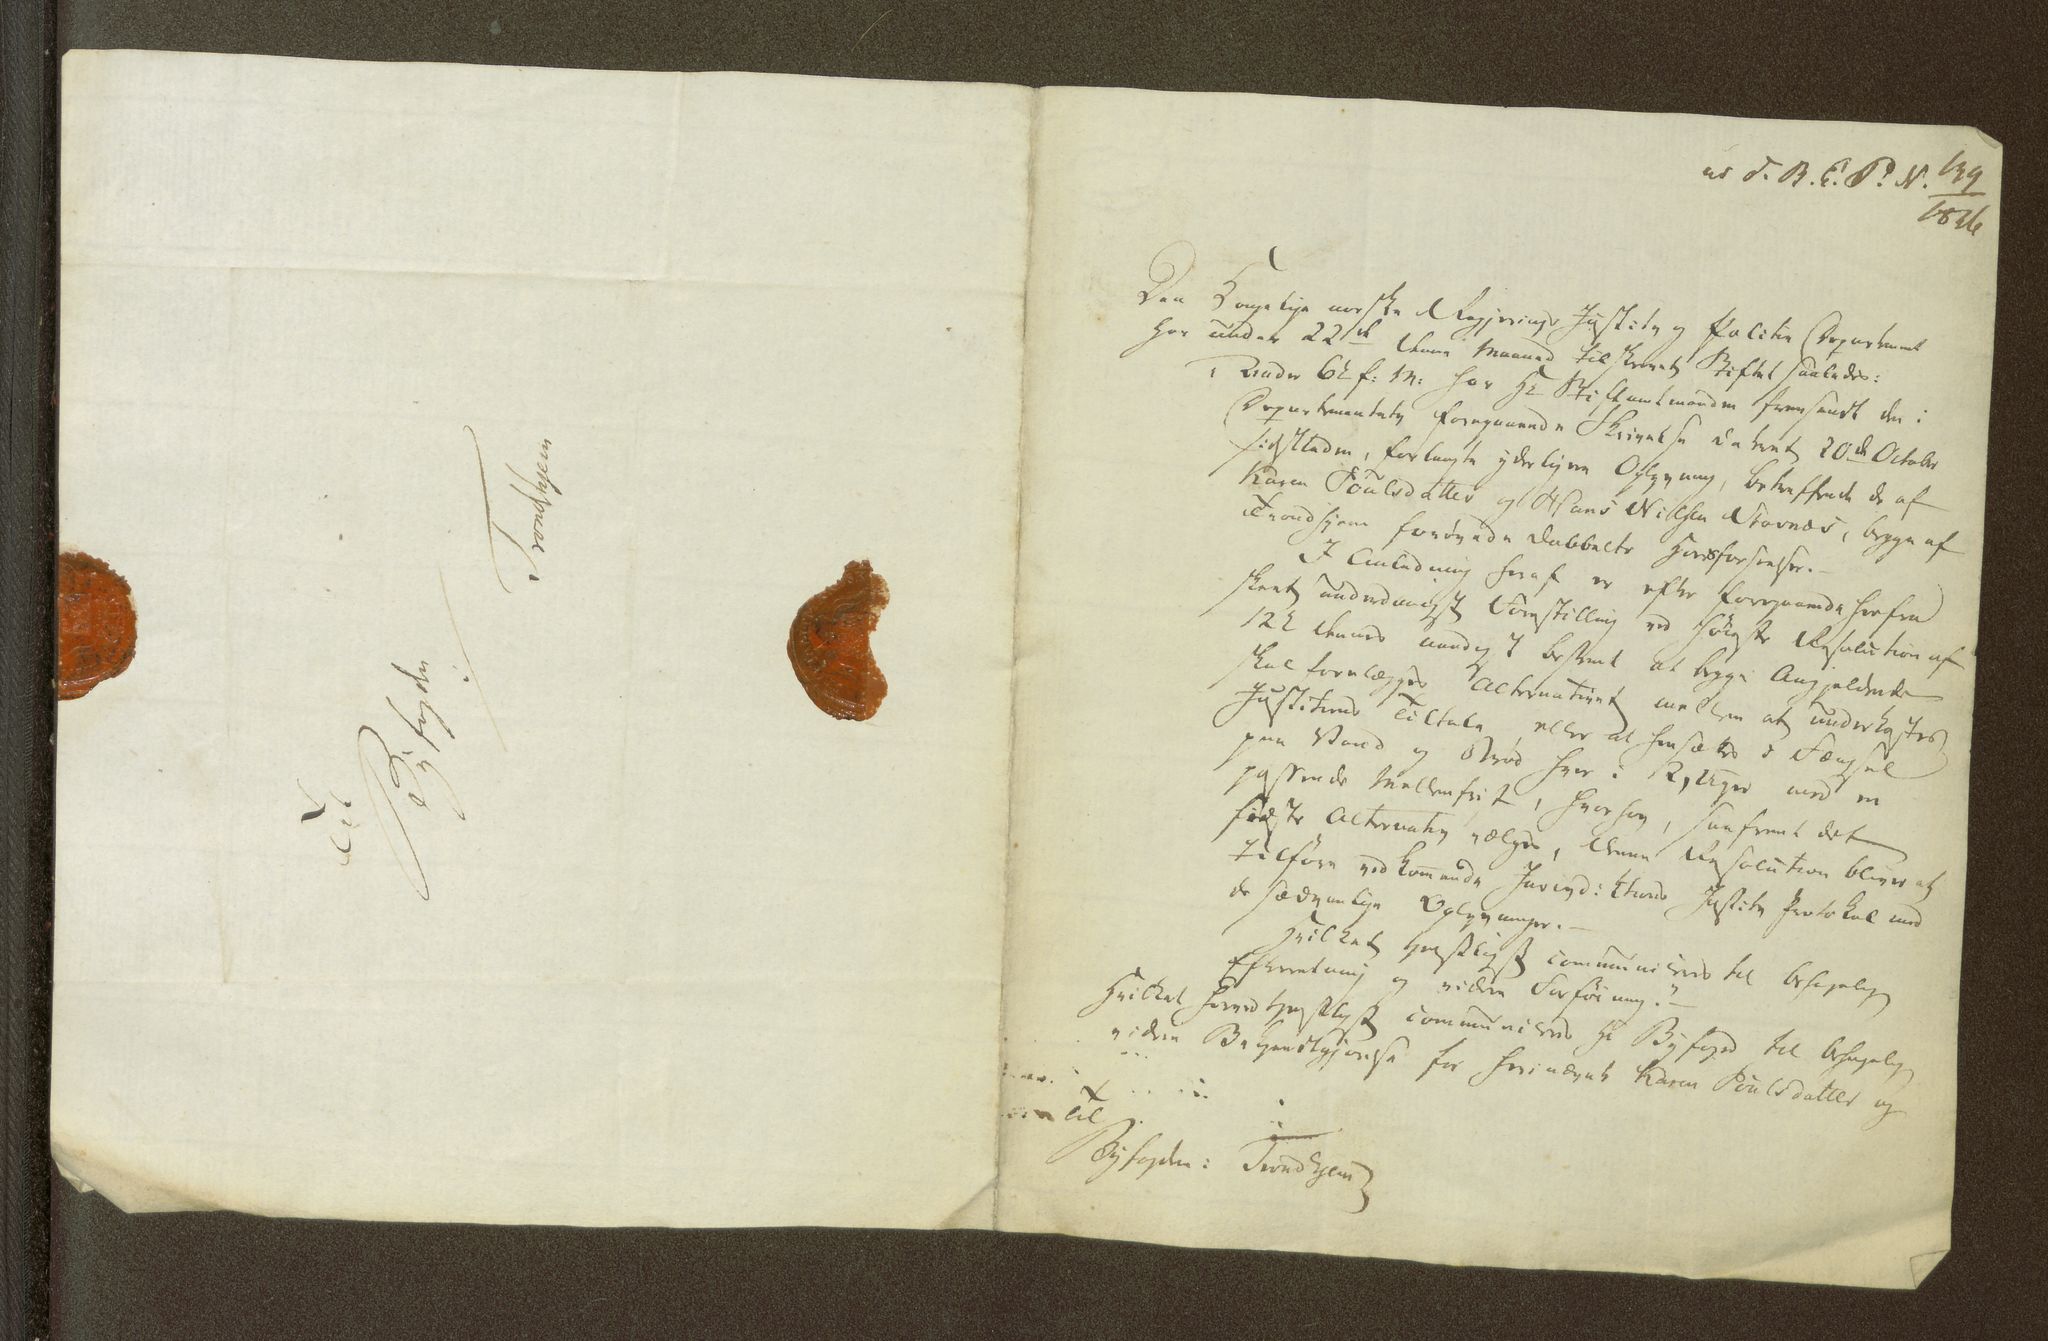 Til
Byfogden
i
Trondhjem
ad T. B. E. P. N. 139
1826
Den Kongelige norske Regjerings Justits og Politie Departement
har under 22de denne Maaned tilskrevet Stiftet saaledes:
"Under 6te f: M: har Hr Stiftamtmanden fremsendt den i
Departementets foregaaende Skrivelse dateret 20de October
sidstleden, forlangte yderligere Oplysning, betreffende de af
Karen Poulsdatter og Hans Nilsen Stornes, begge af
Trondhjem forøvede dobbelte Horsforseelser.-
I Anledning heraf er efter foregaaende herfra
skeet underdanigst Forestilling ved høieste Resolution af
12te dennes naadigst bestemt at begge Angjeldende
skal forelægges Alternativet mellem at underkastes
Justitiens Tiltale, eller at hensættes i Fængsel
paa Vand og Brød hver i 2, Uger med en
passende Mellemfrist, hvorhos, saafremt det
sidste Alternativ vælges, denne Resolution bliver at
tilføre vedkommende Jurisdictions Justits Protokol med
de sædvanlige Oplysninger.-
Hvilket tjenstligst communiceres til behagelig
Efterretning og videre Forføining."-
Hvilket herved tjenstligst communiceres Hr Byfoged til behagelig
videre Bekjendtgjørelse for herinævnte Karen Poulsdatter og
Til
Byfogden i Trondhjem